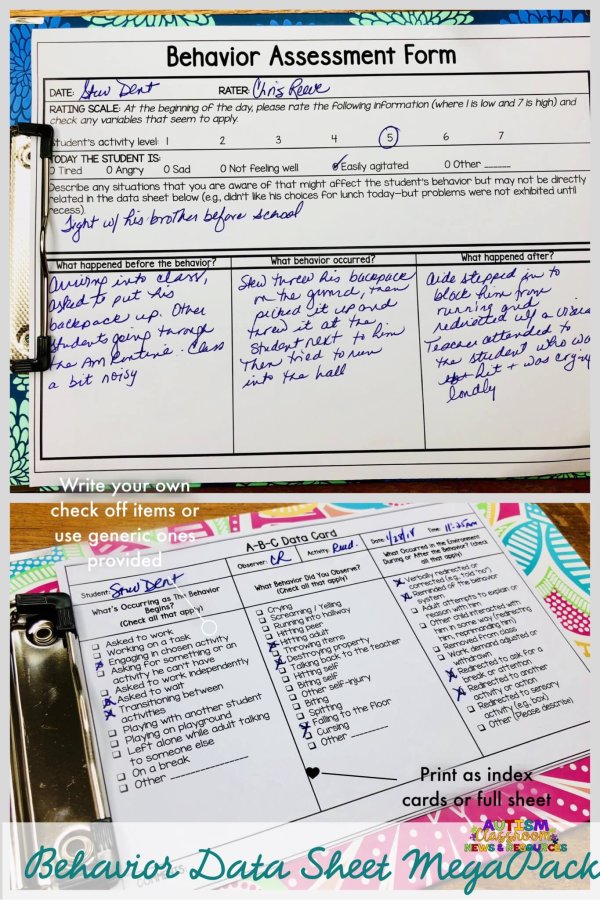 Behavior Assessment Form
DATE: Stew Dent RATER: Chris Reeve
RATING SCALE: At the beginning of the day, please rate the following information (where 1 is low and 7 is high) and
check any variables that seem to apply.
Student's activity level: 1 2 3 4 5 6 7
TODAY THE STUDENT IS:
O Tired O Angry O Sad O Not feeling well O Easily agitated O Other
Describe any situations that you are aware of that might affect the student's behavior but may not be directly
related in the data sheet below (e.g., didn't like his choices for lunch today—but problems were not exhibited until
recess).
Fight w/ his brother before school
What happened before the behavior?
Arriving into class,
asked to put his
backpack up. Other
students going through
the AM Routine. Class
a bit noisy
What behavior occurred?
Stew threw his backpack
on the ground, then
picked it up and
threw it at the
student next to him
Then tried to run
into the hall
What happened after?
Aide stepped in to
block him from
running and
redirected w/ a
Teacher attended to
the student who was
hit + was crying
loudly
Write your own
check off items or
use generic ones
provided
A-B-C Data Card
Student: Stew Dent
Observer: CR Activity: Read. Date: 1/28/18 Time: 11:25am
What's Occurring as The Behavior
Begins?
(Check all that apply)
Asked to work
Working on a task
Engaging in chosen activity
Asking for something or an
activity he can't have
Asked to work independently
Asked to wait
Transitioning between
activities
Playing with another student
Playing on playground
Left alone while adult talking
to someone else
On a break
Other
What Behavior Did You Observe?
(Check all that apply)
Crying
Screaming / Yelling
Running into hallway
Hitting peer
Hitting adult
Throwing items
Destroying property
Talking back to the teacher
Hitting self
Biting self
Other self-injury
Biting
Spitting
Falling to the floor
Cursing
Other
What Occurred in the Environment
During or After the Behavior? (check
all that apply)
Verbally redirected or
corrected (e.g., told "no")
Reminded of the behavior
system
Adult attempts to explain or
reason with him
Other child interacted with
him in some way (redirecting
him, reprimanding him)
Removed from class
Work demand adjusted or
withdrawn
Redirected to ask for a
break or attention
Redirected to another
activity or action
Redirected to sensory
activity (e.g., box)
Other (Please describe)
Print as index
cards or full sheet
AUTISM
Classroom
NEWS & RESOURCES
Behavior Data Sheet MegaPack